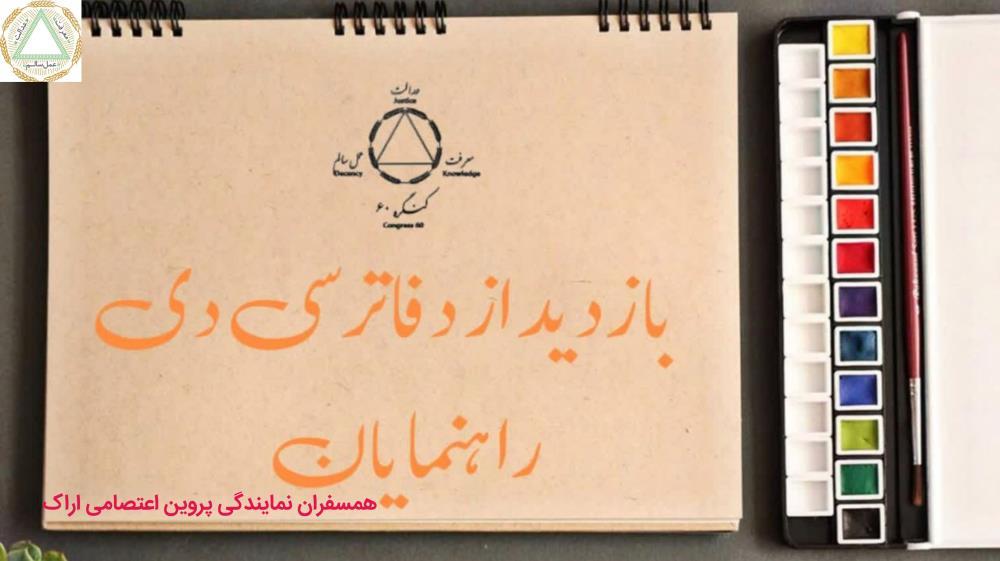 معرفت
عدالت
عمل سالم
عدالت
Justice
عمل سالم
معرفت
Decency
Knowledge
کنگره ۶۰
Congress 60
بازدید از دفاتر سی دی
راهنمایان
همسفران نمایندگی پروین اعتصامی اراک